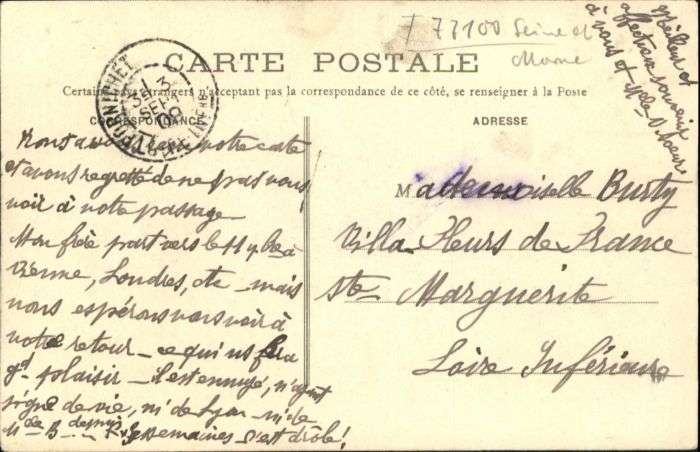 77100 Seine et
Marne
Meilleur et
affectueux souvenir
à vous et Melle
CARTE POSTALE
Certains pays étrangers n'acceptent pas la correspondance de ce côté, se renseigner à la Poste
CORRESPONDANCE
ADRESSE
PORNICHET
13
SEPT
09
LOIRE INFRE
Nous avons votre carte
et avons regretté de ne pas vous
voir à votre passage
Mon frère part vers le 14 à
Vienne, Londres, etc – mais
nous espérons vous voir à
votre retour – ce qui ns fera
gd plaisir – Il est ennuyé, n'ayant
signe de vie, ni de Lyon ni de
Melle B depuis 3 semaines – c'est drôle!
Mademoiselle Burty
Villa Fleurs de France
Ste Marguerite
Loire Inférieure